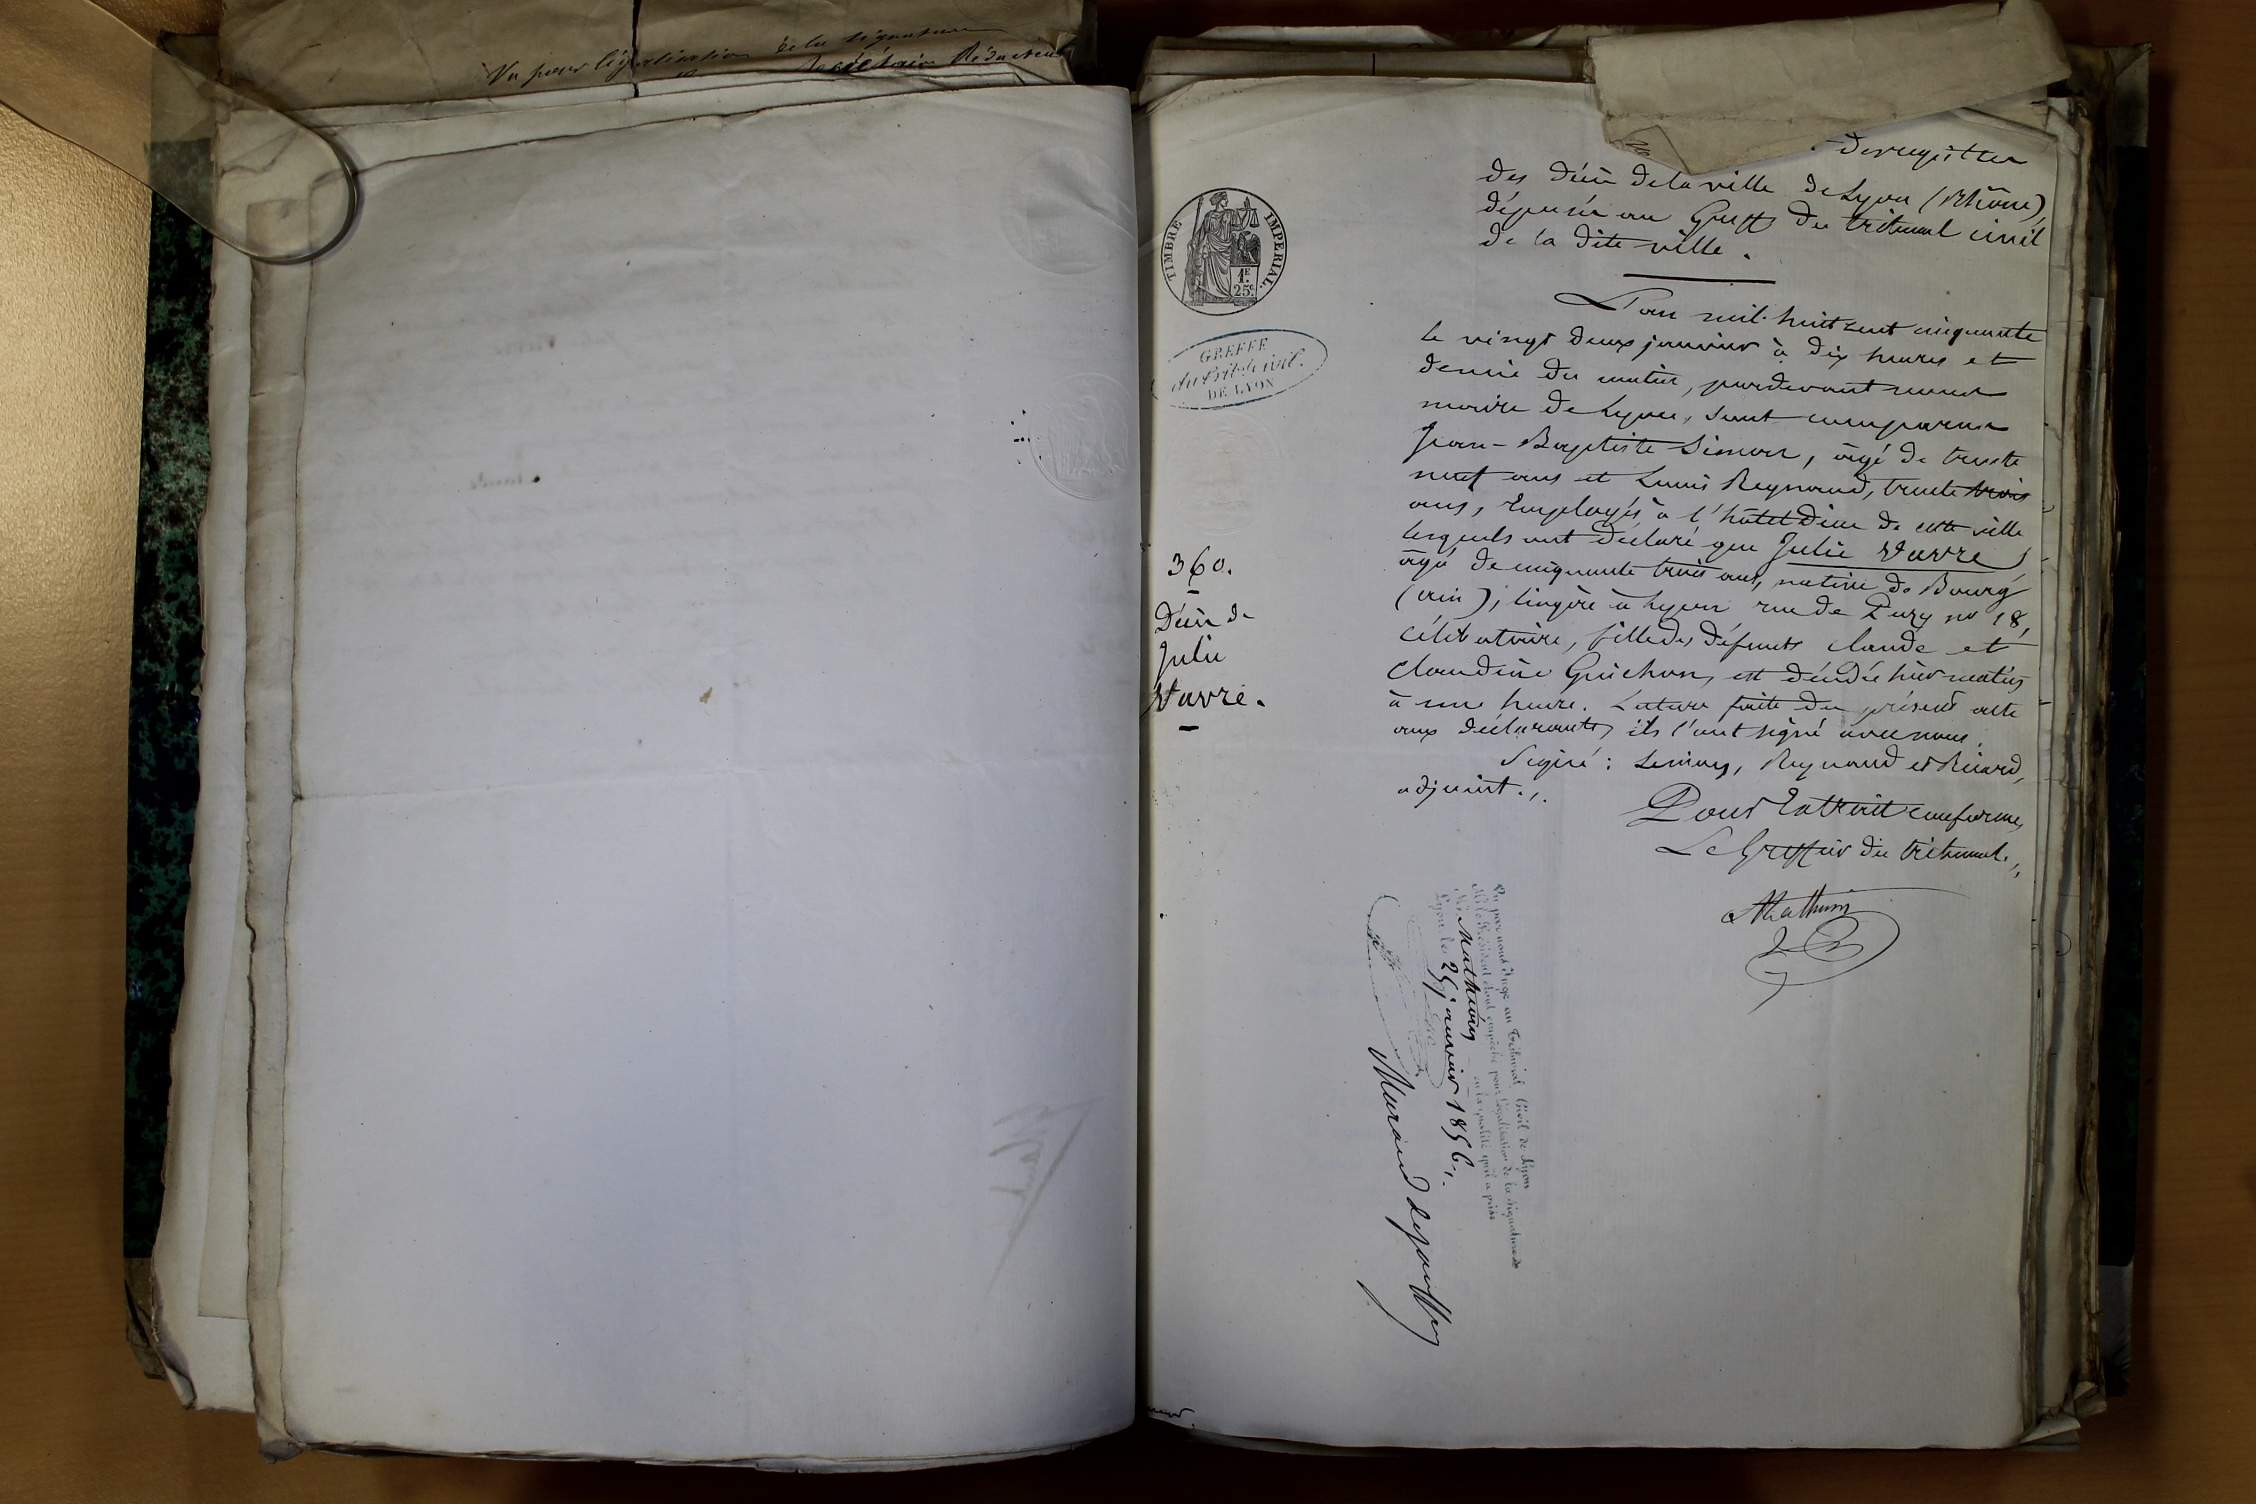 Vu pour légalisation de la signature
Secrétaire Rédacteur
des registres
des décès de la ville de Lyon (Rhône)
déposés au Greffe du tribunal civil
de la dite ville.
TIMBRE IMPERIAL.
1F
25c
GREFFE
du Trib. Civil.
DE LYON
L'an mil huit cent cinquante
le vingt deux janvier à dix heures et
demie du matin, pardevant nous
maire de Lyon, sont comparus
Jean-Baptiste Simon, âgé de trente
neuf ans et Louis Reynaud, trente trois
ans, Employés à l'hôtel Dieu de cette ville
lesquels ont déclaré que Julie Vavre
âgé de cinquante trois ans, native de Bourg
(ain), lingère à Lyon rue de Puzy no 18,
célibataire, fille des défunts Claude et
Claudine Guichon, est décédée hier matin
à une heure. Lecture faite du présent acte
aux déclarants, ils l'ont signé avec nous.
Signé: Simon, Reynaud et Ricard,
adjoint.
360.
Décès de
Julie
Vavre.
Pour Extrait conforme,
Le Greffier du tribunal,
Mathurin
Vu par nous Juge au Tribunal Civil de Lyon
M. le Président étant empêché pour légalisation de la signature de
Me Mathurin en la qualité qu'il a prise
Lyon le 25 janvier 1856.